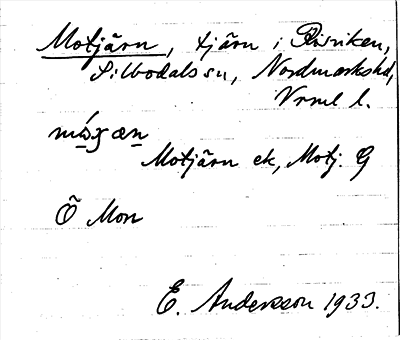 Motjärn, tjärn i Råriken,
Silbodals sn, Nordmarkshd,
Vrml l.
Motjärn ek, Motj. G
Õ Mon
E. Andersson 1933.